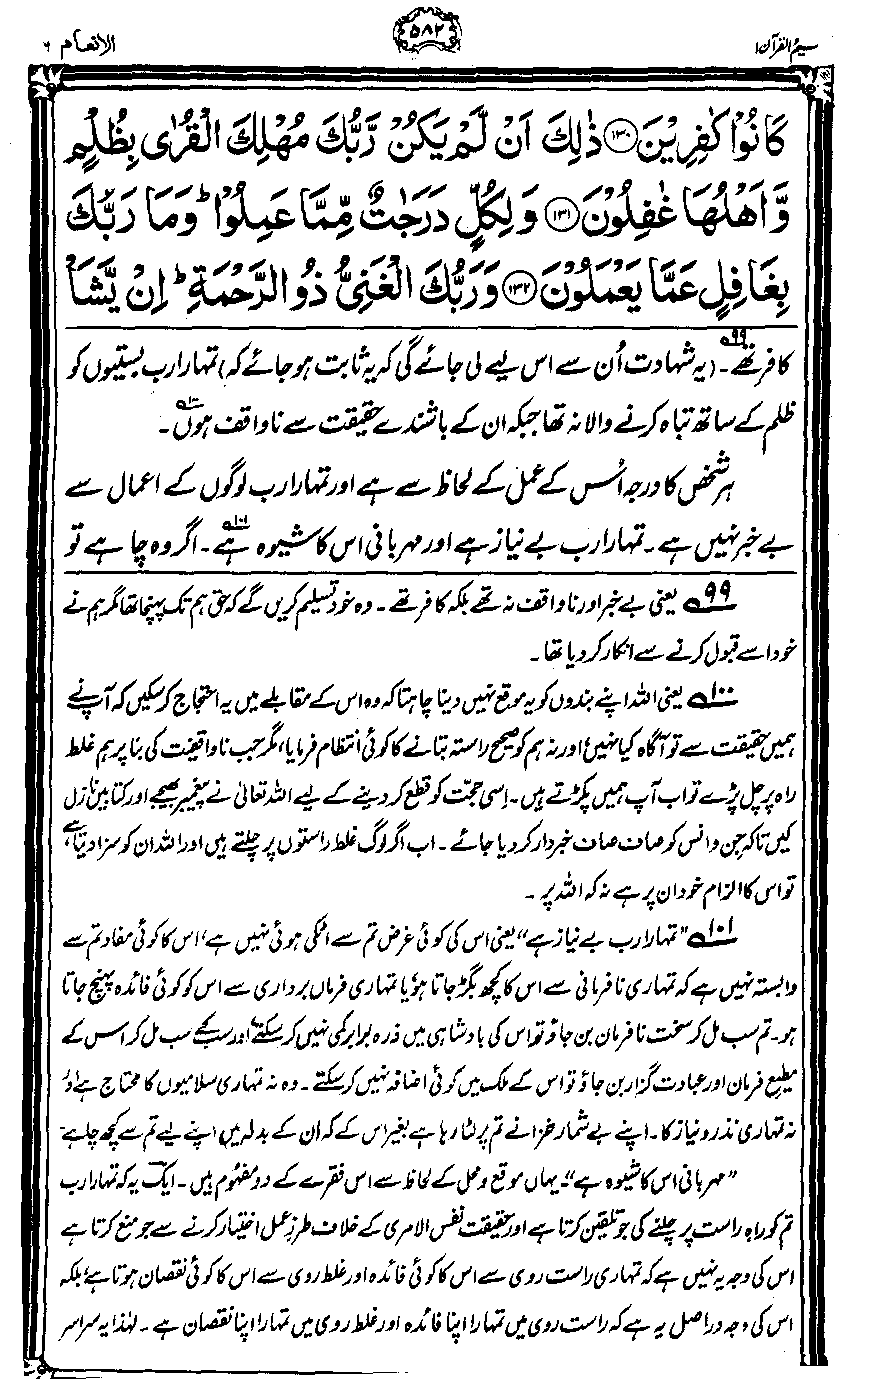 الانعام ۶
۵۸۲
تفہیم القرآن ۱
كَانُوْا كٰفِرِيْنَ ﴿۱۳۰﴾ ذٰلِكَ اَنْ لَّمْ يَكُنْ رَّبُّكَ مُهْلِكَ الْقُرٰى بِظُلْمٍ
وَّاَهْلُهَا غٰفِلُوْنَ ﴿۱۳۱﴾ وَلِكُلٍّ دَرَجٰتٌ مِّمَّا عَمِلُوْا ؕ وَمَا رَبُّكَ
بِغَافِلٍ عَمَّا يَعْمَلُوْنَ ﴿۱۳۲﴾ وَرَبُّكَ الْغَنِىُّ ذُو الرَّحْمَةِ ؕ اِنْ يَّشَاْ
کافر تھے۹۹۔ (یہ شہادت اُن سے اس لیے لی جائے گی کہ یہ ثابت ہو جائے کہ) تمہارا رب بستیوں کو
ظلم کے ساتھ تباہ کرنے والا نہ تھا جبکہ ان کے باشندے حقیقت سے ناواقف ہوں۱۰۰۔
ہر شخص کا درجہ اُس کے عمل کے لحاظ سے ہے اور تمہارا رب لوگوں کے اعمال سے
بے خبر نہیں ہے۔ تمہارا رب بے نیاز ہے اور مہربانی اس کا شیوہ ہے۱۰۱۔ اگر وہ چاہے تو
۹۹ یعنی بے خبر اور ناواقف نہ تھے بلکہ کافر تھے۔ وہ خود تسلیم کریں گے کہ حق ہم تک پہنچا تھا مگر ہم نے
خود اسے قبول کرنے سے انکار کر دیا تھا۔
۱۰۰ یعنی اللہ اپنے بندوں کو یہ موقع نہیں دینا چاہتا کہ وہ اس کے مقابلے میں یہ احتجاج کر سکیں کہ آپ نے
ہمیں حقیقت سے تو آگاہ کیا نہیں، اور نہ ہم کو صحیح راستہ بتانے کا کوئی انتظام فرمایا، مگر جب ناواقفیت کی بنا پر ہم غلط
راہ پر چل پڑے تو اب آپ ہمیں پکڑتے ہیں۔ اسی حجت کو قطع کر دینے کے لیے اللہ تعالیٰ نے پیغمبر بھیجے اور کتابیں نازل
کیں تاکہ جن و انس کو صاف صاف خبردار کر دیا جائے۔ اب اگر لوگ غلط راستوں پر چلتے ہیں اور اللہ ان کو سزا دیتا ہے،
تو اس کا الزام خود ان پر ہے نہ کہ اللہ پر۔
۱۰۱ ”تمہارا رب بے نیاز ہے“ یعنی اس کی کوئی غرض تم سے اٹکی ہوئی نہیں ہے، اس کا کوئی مفاد تم سے
وابستہ نہیں ہے کہ تمہاری نافرمانی سے اس کا کچھ بگڑ جاتا ہو، یا تمہاری فرماں برداری سے اس کو کوئی فائدہ پہنچ جاتا
ہو۔ تم سب مل کر سخت نافرمان بن جاؤ تو اس کی بادشاہی میں ذرہ برابر کمی نہیں کر سکتے، اور سب کے سب مل کر اس کے
مطیع فرمان اور عبادت گزار بن جاؤ تو اس کے ملک میں کوئی اضافہ نہیں کر سکتے۔ وہ نہ تمہاری سلامیوں کا محتاج ہے اور
نہ تمہاری نذر و نیاز کا۔ اپنے بے شمار خزانے تم پر لٹا رہا ہے بغیر اس کے کہ ان کے بدلہ میں اپنے لیے تم سے کچھ چاہے۔
”مہربانی اس کا شیوہ ہے“۔ یہاں موقع و محل کے لحاظ سے اس فقرے کے دو مفہوم ہیں۔ ایک یہ کہ تمہارا رب
تم کو راہِ راست پر چلنے کی جو تلقین کرتا ہے اور حقیقت نفس الامری کے خلاف طرزِ عمل اختیار کرنے سے جو منع کرتا ہے
اس کی وجہ یہ نہیں ہے کہ تمہاری راست روی سے اس کا کوئی فائدہ اور غلط روی سے اس کا کوئی نقصان ہوتا ہے، بلکہ
اس کی وجہ دراصل یہ ہے کہ راست روی میں تمہارا اپنا فائدہ اور غلط روی میں تمہارا اپنا نقصان ہے۔ لہٰذا یہ سراسر